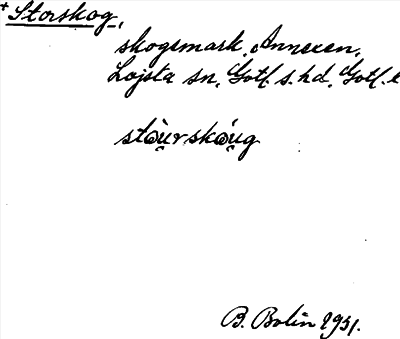 + Storskog,
skogsmark. Annexen.
Lojsta sn, Gotl. s. hd. Gotl. l
stòu̯rskóu̯g
B. Bolin 1951.